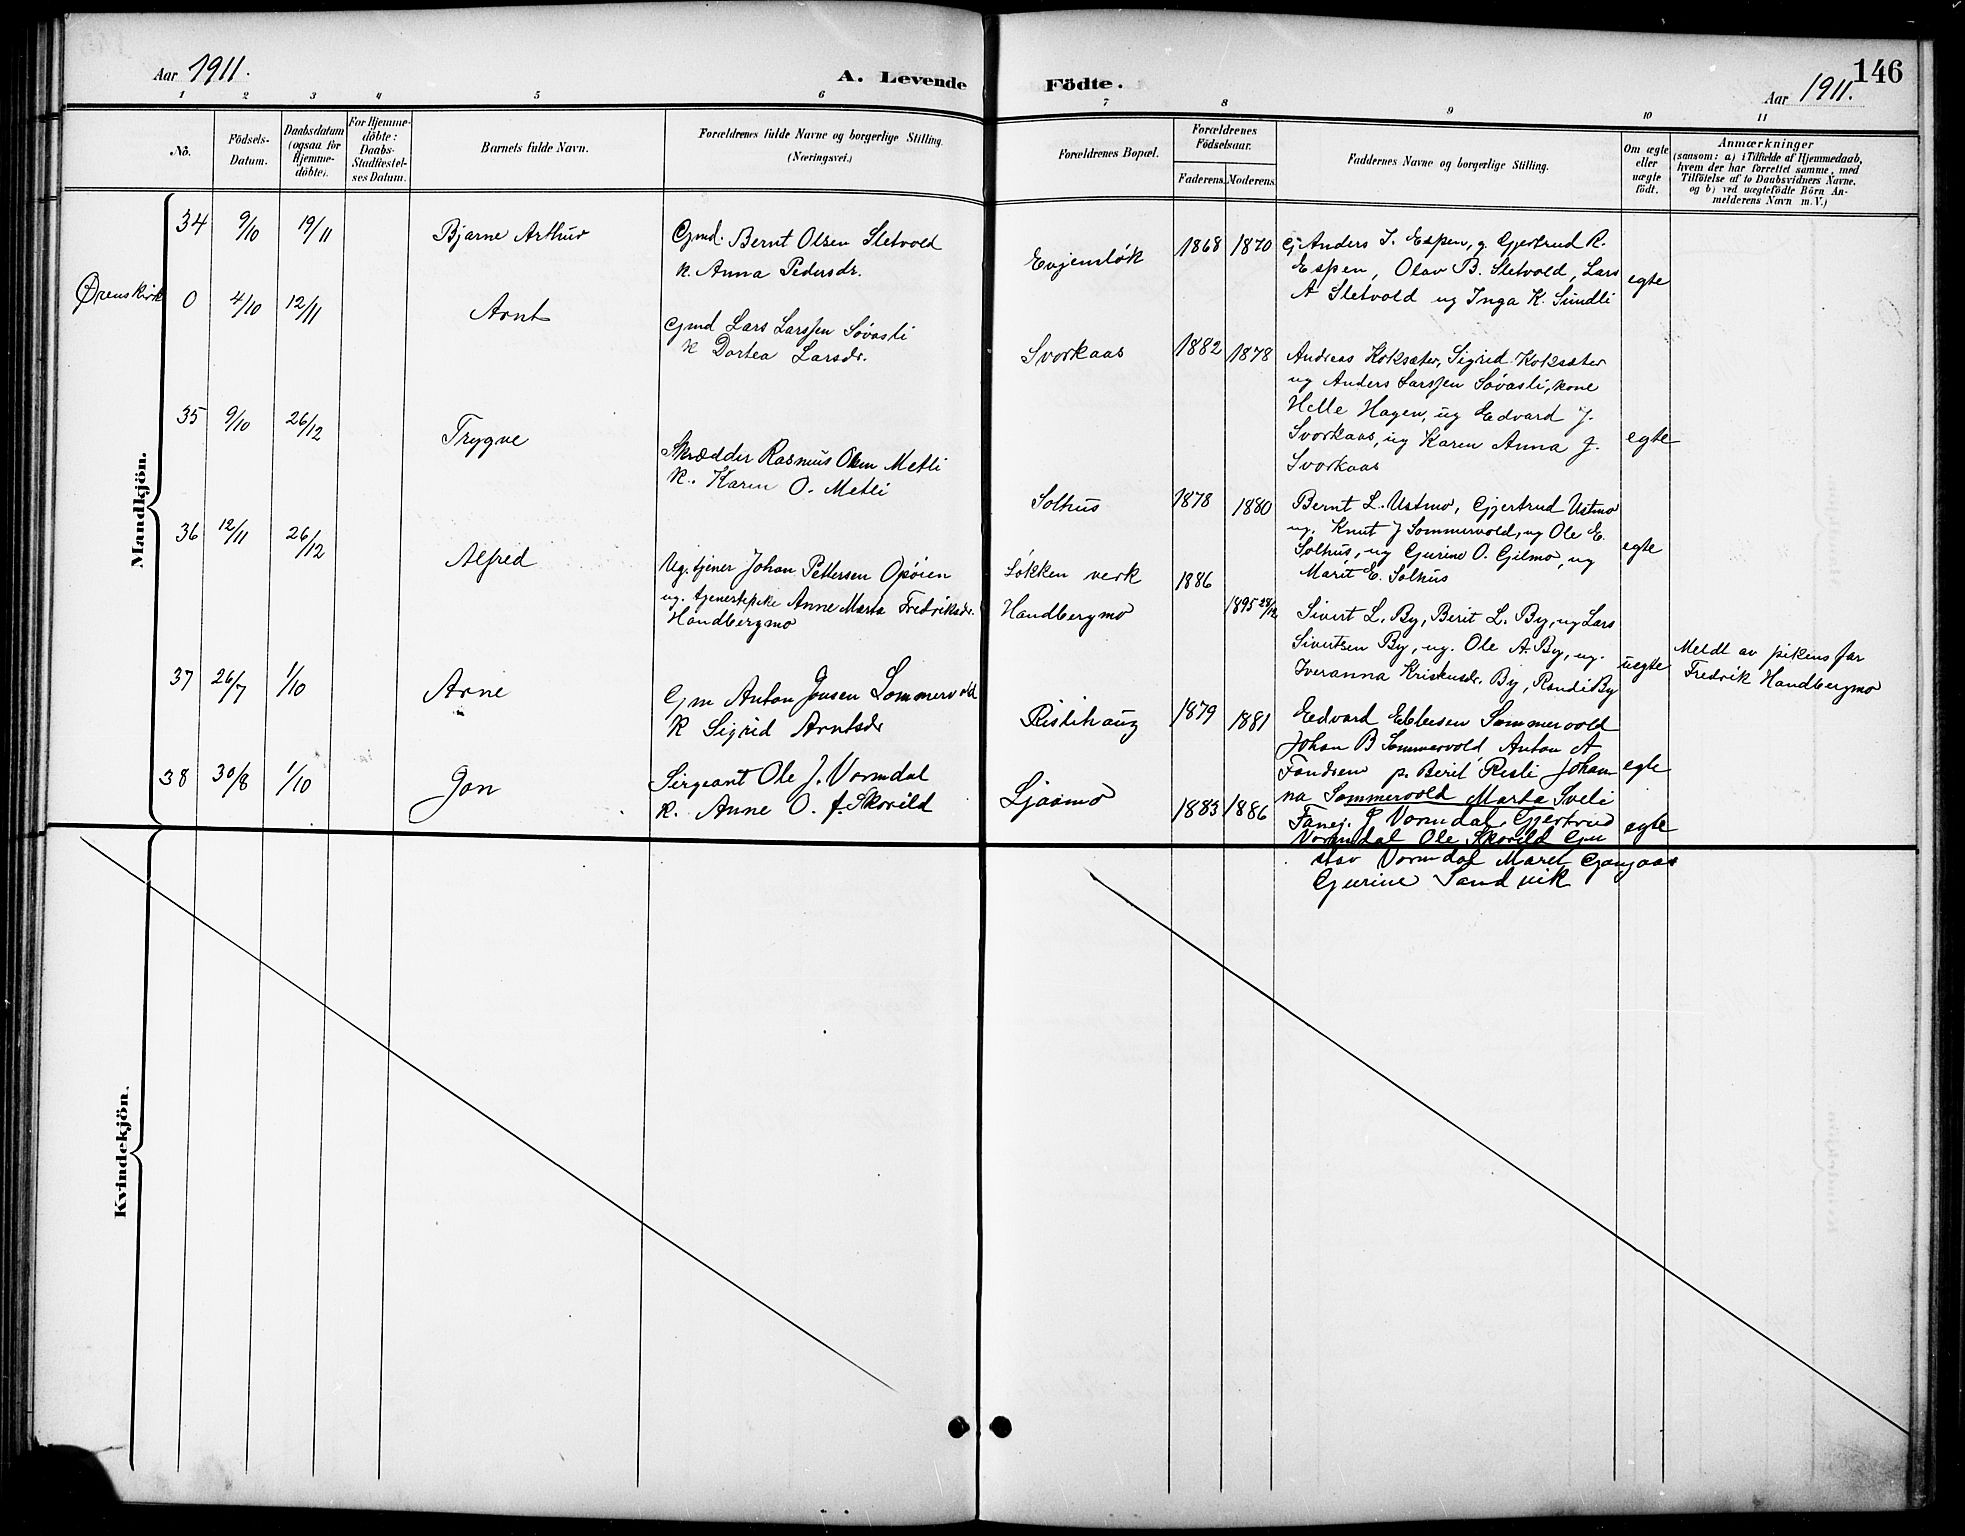 Aar 1911.
A. Levende
Födte.
Aar 1911.
146
1 2 3 4 5 6 7 8 9 10 11
No.
Födsels-
Datum.
Daabsdatum
(ogsaa for
Hjemme-
döbte).
For Hjemme-
döbte:
Daabs-
Stadfæstel-
ses Datum.
Barnets fulde Navn.
Forældrenes fulde Navne og borgerlige Stilling.
(Næringsvei.)
Forældrenes Bopæl.
Forældrenes
Födselsaar.
Faderens.
Moderens.
Faddernes Navne og borgerlige Stilling.
Om ægte
eller
uægte
födt.
Anmærkninger
(saasom: a) i Tilfælde af Hjemmedaab,
hvem der har forrettet samme, med
Tilföielse af to Daabsvidners Navne,
og b) ved uægtefödte Börn An-
melderens Navn m. V.)
Mandkjön.
34 9/10 19/11 Bjarne Arthur
Gmd. Bernt Olsen Sletvold
k. Anna Pedersdr.
Evjensløk 1868 1870
Gj Anders J. Espen, g. Gjertrud R.
Espen, Olav B. Sletvold, Lars
A Sletvold ug Inga K. Sundli
egte
Ørenskirk
0 4/10 12/11 Arnt
Gmd Lars Larssen Søvasli
k Dortea Larsdr.
Svorkaas 1882 1878
Andreas Koksæter, Sigrid Koksæter
ug Anders Larssen Søvasli, kone
Helle Hagen, ug Edvard J.
Svorkaas, ug Karen Anna J.
Svorkaas
egte
35 9/10 26/12 Trygve
Skrædder Rasmus Olsen Metli
k. Karen O. Metli
Solhus 1878 1880
Bernt L. Ustmo, Gjertrud Ustmo
ug. Knut J Sommervold, ug Ole E.
Solhus, ug Gurine O. Gilmo, ug
Marit E. Solhus
egte
36 12/11 26/12 Alfred
Ug. tjener Johan Pettersen Opøien
ug. tjenestepike Anne Marta Fredriksdr.
Handbergmo
Løkken verk
Handbergmo
1886 1895 28/12
Sivert L. By, Berit L. By, ug Lars
Sivertsen By, ug. Ole A. By, ug.
Iveranna Kristensdr. By, Randi By
uegte
Meldt av pikens far
Fredrik Handbergmo
37 26/7 1/10 Arne
Gm Anton Jonsen Sommervold
k Sigrid Arntsdr
Ristihaug 1879 1881
Edvard Ebbesen Sommervold
Johan B Sommervold Anton A
Fandrem p. Berit Resli Johan
na Sommervold Marta Sveli
egte
38 30/8 1/10 Jon
Sergeant Ole J. Vormdal
k. Anne O. f. Skorild
Ljosmo 1883 1886
Fanej. J Vormdal, Gjertrud
Vormdal Ole Skorild Gu
stav Vormdal Maret Gangaas
Gurine Sandvik
egte
Kvindekjön.